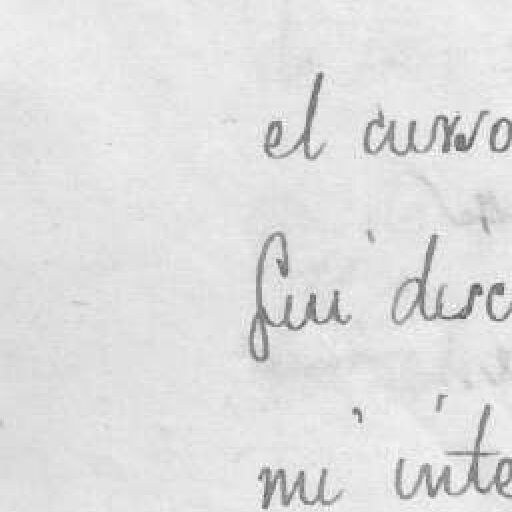 el curso
fui disc
mi inte